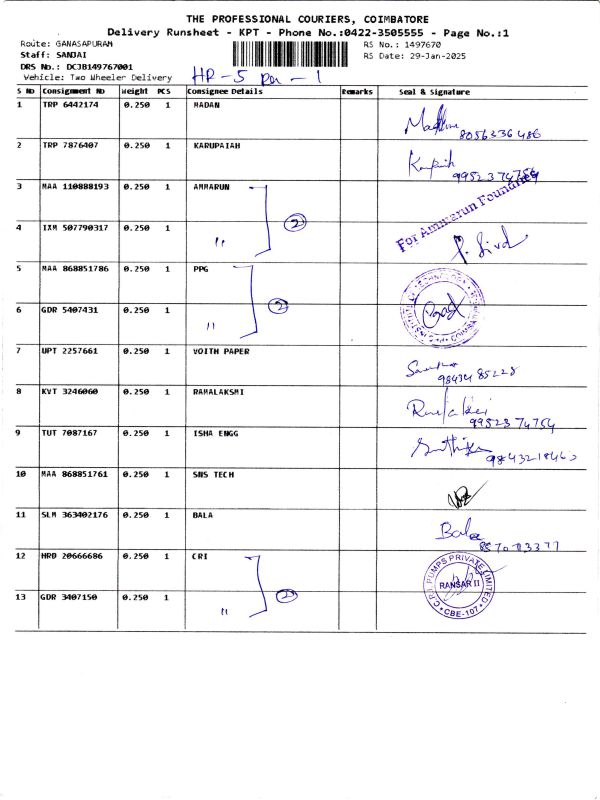 THE PROFESSIONAL COURIERS, COIMBATORE
Delivery Runsheet - KPT - Phone No.:0422-3505555 - Page No.:1
Route: GANASAPURAM RS No.: 1497670
Staff: SANJAI RS Date: 29-Jan-2025
DRS No.: DCJB149767001
Vehicle: Two Wheeler Delivery HP - 5 - 1
S NO Consignment No Weight PCS Consignee Details Remarks Seal & Signature
1 TRP 6442174 0.250 1 MADAN 8056336486
2 TRP 7876407 0.250 1 KARUPAIAH
3 MAA 110888193 0.250 1 AMMARUN For Ammarun Foundries
4 IXM 507790317 0.250 1 " 2
5 MAA 868851786 0.250 1 PPG
6 GDR 5407431 0.250 1 " 2
7 UPT 2257661 0.250 1 VOITH PAPER 98434 85228
8 KVT 3246060 0.250 1 RAMALAKSMI 99523 74754
9 TUT 7087167 0.250 1 ISHA ENGG
10 MAA 868851761 0.250 1 SNS TECH
11 SLM 363402176 0.250 1 BALA Bala
12 HRO 20666686 0.250 1 CRI C.R.I. PUMPS PRIVATE LIMITED
13 GDR 3407150 0.250 1 " 2 CBE-107